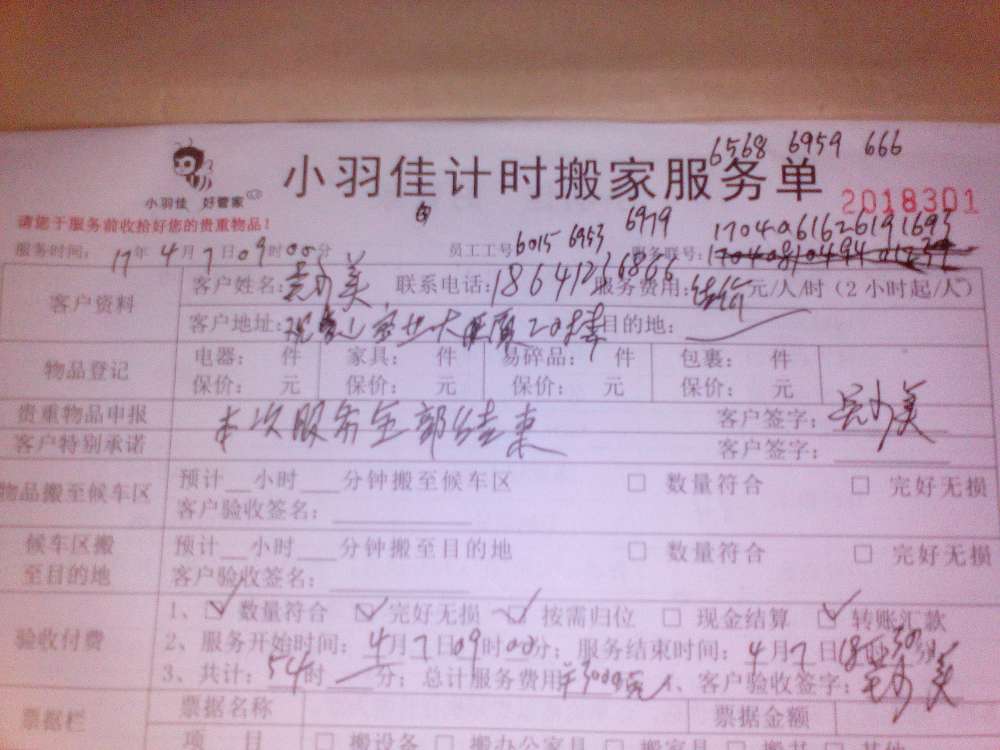 6568 6959 666
小羽佳 好管家
小羽佳计时搬家服务单
2018301
请您于服务前收拾好您的贵重物品!
6979
17040616261 91693
服务时间: 17年 4月 7日 09时 00分 员工工号 6015 6953 服务联号:
客户资料 客户姓名: 美 联系电话: 18641236866 服务费用: 元/人/时(2小时起/人)
客户地址: 20楼 目的地:
物品登记 电器: 件 家具: 件 易碎品: 件 包裹: 件
保价: 元 保价: 元 保价: 元 保价: 元
贵重物品申报 本次服务全部结束 客户签字: 美
客户特别承诺 客户签字:
物品搬至候车区 预计__小时___分钟搬至候车区 □ 数量符合 □ 完好无损
客户验收签名:
候车区搬至目的地 预计__小时___分钟搬至目的地 □ 数量符合 □ 完好无损
客户验收签名:
验收付费 1、☑ 数量符合 ☑ 完好无损 ☑ 按需归位 □ 现金结算 ☑ 转账汇款
2、服务开始时间: 4月 7日 09时 00分; 服务结束时间: 4月 7日 18时 30分
3、共计: 54时 分; 总计服务费用 ¥3000元 4、客户验收签字: 美
票据栏 票据名称 票据金额
项 目 □ 搬设备 □ 搬办公家具 □ 搬家具